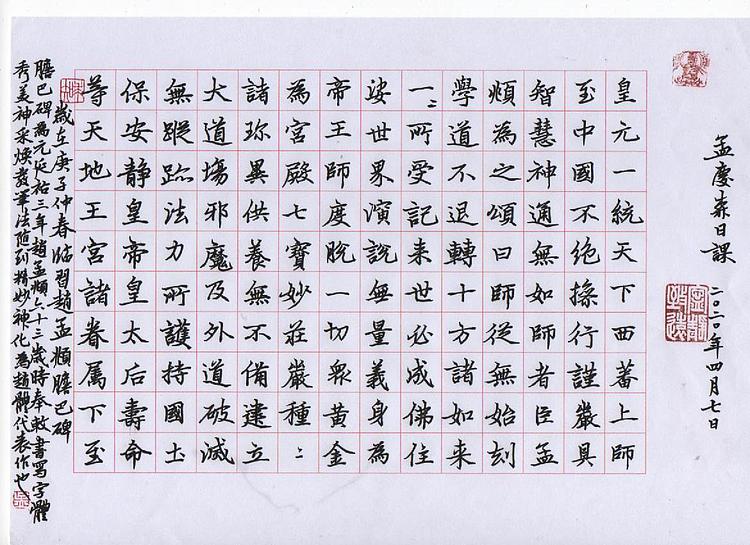 孟慶森日課
二〇二〇年四月七日
皇元一統天下西蕃上師
至中國不絕操行謹嚴具
智慧神通無如師者臣孟
頫為之頌曰師從無始刻
學道不退轉十方諸如来
一〻所受記来世必成佛住
娑世界演說無量義身為
帝王師度脫一切衆黄金
為宮殿七寶妙莊嚴種〻
諸珎異供養無不備建立
大道場邪魔及外道破滅
無蹤跡法力所護持國土
保安静皇帝皇太后壽命
等天地王宮諸眷属下至
歲在庚子仲春临習趙孟頫膽巴碑
膽巴碑為元延祐三年趙孟頫六十三歲時奉敕書寫字體
秀美神采焕發筆法随到精妙神化為趙體代表作也